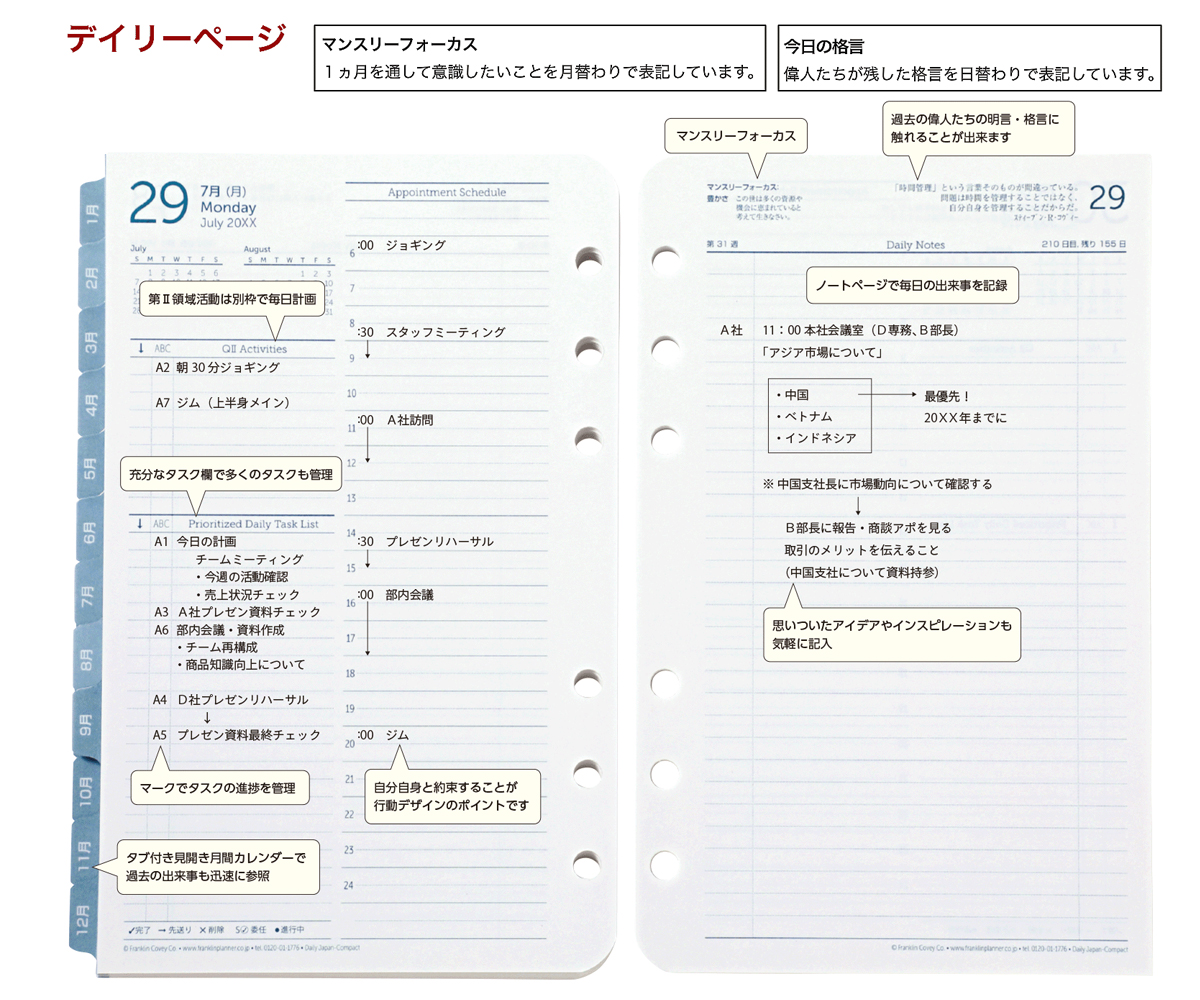 デイリーページ
マンスリーフォーカス
１ヵ月を通して意識したいことを月替わりで表記しています。
今日の格言
偉人たちが残した格言を日替わりで表記しています。
マンスリーフォーカス
過去の偉人たちの明言・格言に
触れることが出来ます
1月
2月
3月
4月
5月
6月
7月
8月
9月
10月
11月
12月
29
7月 (月)
Monday
July 20XX
July
S M T W T F S
1 2 3 4 5 6
August
S M T W T F S
1 2 3
第Ⅱ領域活動は別枠で毎日計画
↓ ABC QII Activities
A2 朝30分ジョギング
A7 ジム（上半身メイン）
充分なタスク欄で多くのタスクも管理
↓ ABC Prioritized Daily Task List
A1 今日の計画
チームミーティング
・今週の活動確認
・売上状況チェック
A3 Ａ社プレゼン資料チェック
A6 部内会議・資料作成
・チーム再構成
・商品知識向上について
A4 Ｄ社プレゼンリハーサル
↓
A5 プレゼン資料最終チェック
マークでタスクの進捗を管理
タブ付き見開き月間カレンダーで
過去の出来事も迅速に参照
✓完了 →先送り ×削除 S 委任 ●進行中
© Franklin Covey Co. • www.franklinplanner.co.jp • tel. 0120-01-1776 • Daily Japan-Compact
Appointment Schedule
6 :00 ジョギング
7
8 :30 スタッフミーティング
9
10
11 :00 Ａ社訪問
12
13
14 :30 プレゼンリハーサル
15
16 :00 部内会議
17
18
19
20 :00 ジム
21
自分自身と約束することが
行動デザインのポイントです
22
23
24
マンスリーフォーカス:
豊かさ この世は多くの資源や
機会に恵まれていると
考えて生きなさい。
「時間管理」という言葉そのものが間違っている。
問題は時間を管理することではなく、
自分自身を管理することだからだ。
スティーブン・R・コヴィー
29
第31週 Daily Notes 210日目, 残り155日
ノートページで毎日の出来事を記録
Ａ社 11：00 本社会議室（Ｄ専務、Ｂ部長）
「アジア市場について」
・中国 → 最優先！
・ベトナム 20ＸＸ年までに
・インドネシア
※ 中国支社長に市場動向について確認する
↓
Ｂ部長に報告・商談アポを見る
取引のメリットを伝えること
（中国支社について資料持参）
思いついたアイデアやインスピレーションも
気軽に記入
© Franklin Covey Co. • www.franklinplanner.co.jp • tel. 0120-01-1776 • Daily Japan-Compact